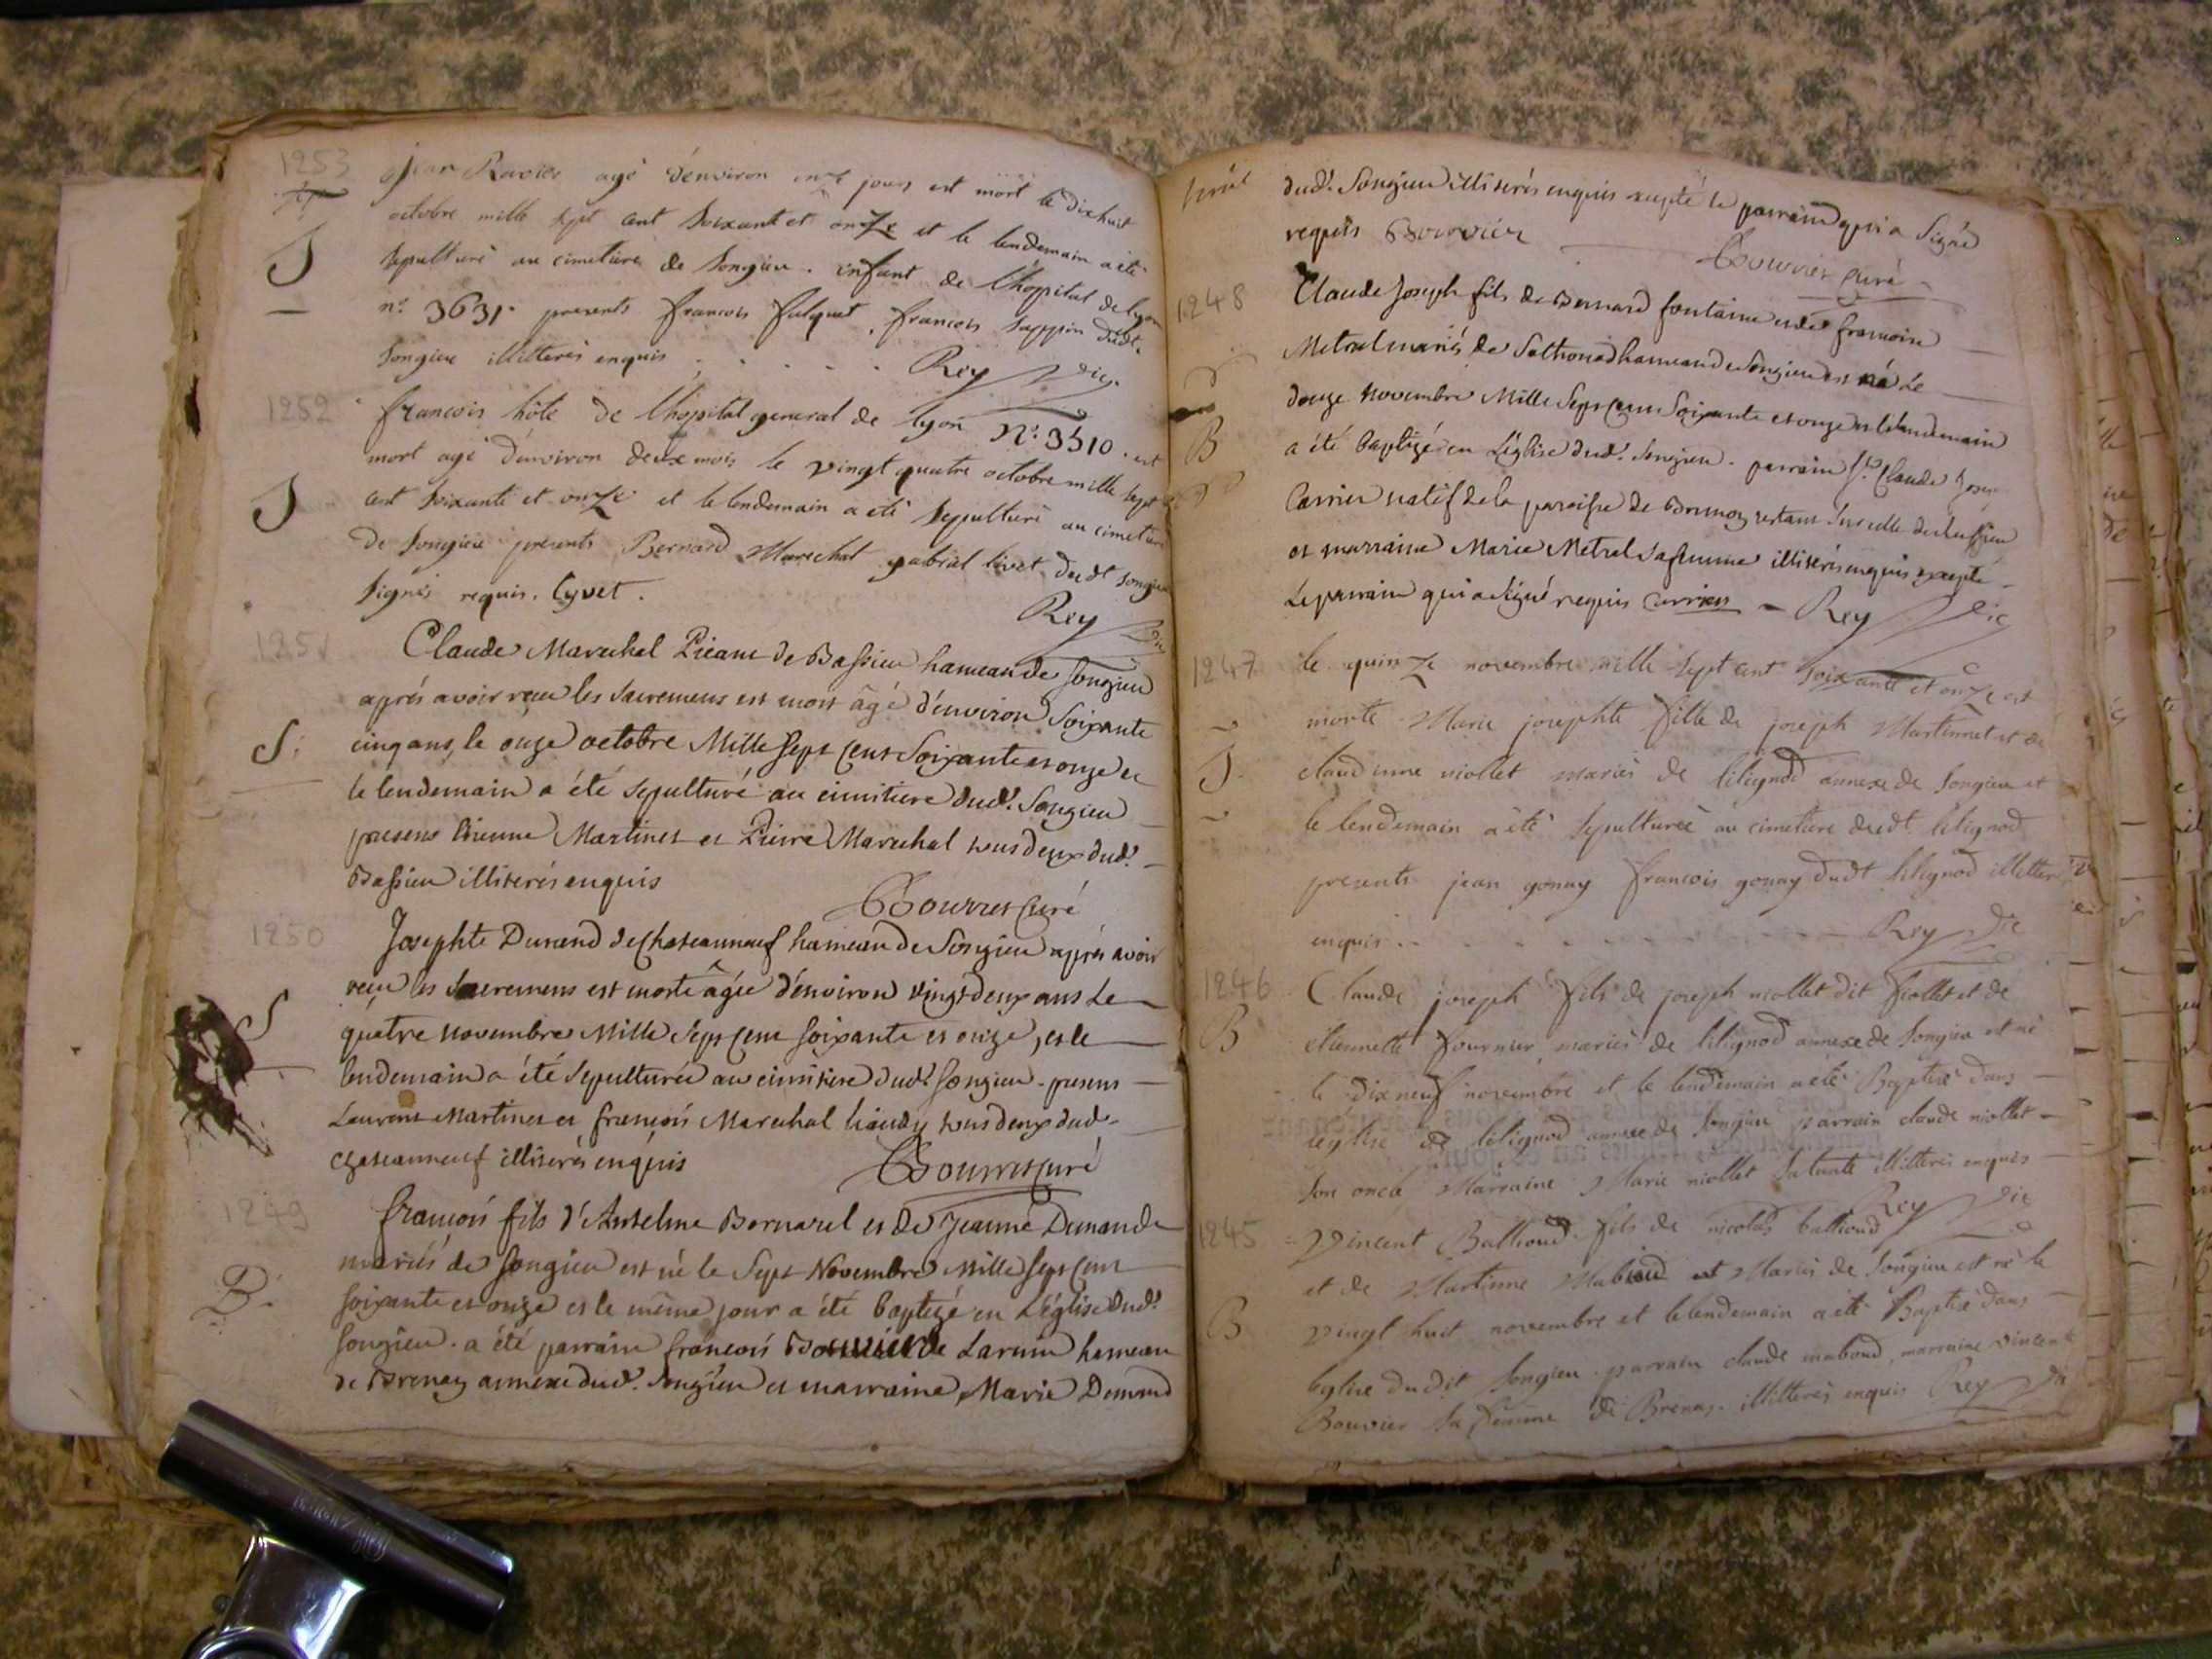 1253
Jean Ravier agé d'environ onze jours est mort le dixhuit
octobre mille sept cent soixante et onze et le lendemain a été
S
sepulturé au cimetiere de Songieu. enfant de l'hopital de lyon
n°. 3631. presents francois falquet, francois sappin dudt.
Songieu illitterés enquis . . . . . Rey vic.
1252
francois hôte de l'hopital general de lyon N°. 3510. est
mort agé d'environ deux mois le vingt quatre octobre mille sept
S
cent soixante et onze et le lendemain a eté sepulturé au cimetiere
de Songieu presents Bernard Marechal gabriel livet dudt songieu
signés requis. Lyvet.
Rey vic
1251
Claude Marechal de Bassieu hameau de Songieu
après avoir reçu les sacremens est mort âgé d'environ soixante
S.
cinq ans, le onze octobre Mille Sept Cent Soixante et onze et
le lendemain a été sepulturé au cimitiere dud. Songieu
presens Martinet et Pierre Marechal tous deux dud.
Bassieu illiterés enquis
Bourret Curé
1250
Josephte Durand de Chateauneuf hameau de Songieu après avoir
reçu les sacremens est morte âgée d'environ vingt deux ans Le
S
quatre novembre Mille Sept Cent soixante et onze, et le
lendemain a été sepulturée au cimitiere dud. Songieu. presens
Laurent Martinet et françois Marechal tous deux dud.
chateauneuf illiterés enquis
Bourret Curé
1249
françois fils d'Antelme Bornarel et De Jeanne Dunand
mariés de Songieu est né le Sept Novembre Mille Sept Cent
B.
soixante et onze et le même jour a été baptizé en L'église dud.
songieu. a été parrain françois Bouvier de hameau
de Brenaz annexe dud. Songieu et marraine Marie
dud. Songieu illiterés enquis excepté le parrain qui a signé
requis Bouvier
Bourret Curé
1248
Claude Joseph fils de Bernard fontaine et de francoise
Metral mariés de Sothonod hameau de Songieu est né Le
douze Novembre Mille Sept Cent Soixante et onze et le lendemain
B
a été baptizé en L'église dud. Songieu. parrain Sr. Claude Joseph
Carrier natif de la paroisse de restant sur celle de
et marraine Marie Metral sa femme illiterés enquis excepté
Le parrain qui a signé requis Carrier - Rey Vic
1247
le quinze novembre mille sept cent soixante et onze est
morte Marie josephte fille de joseph Martinnet et de
S.
claudinne niollet mariés de lilignod annexe de Songieu et
le lendemain a eté sepulturée au cimetiere dudt lilignod
presents jean gonny francois gonny dudt lilignod illitteré
enquis . . . . . . Rey Vic
1246
Claude joseph fils de joseph niollet dit follet et de
B
etiennette fournier, mariés de lilignod annexe de Songieu est né
le Dix neuf novembre et le lendemain a eté Baptisé dans
l'eglise de lilignod annexe de Songieu parrain claude niollet
son oncle Marraine Marie niollet sa tante illitterés enquis
Rey Vic
1245
Vincent Ballioud fils de nicolas ballioud
et de Martinne Maboud et Mariés de Songieu est né le
B
vingt huit novembre et le lendemain a eté Baptisé dans
leglise dudit Songieu. parrain claude maboud, marraine vincente
Bouvier sa femme de Brenaz. illitterés enquis Rey Vic